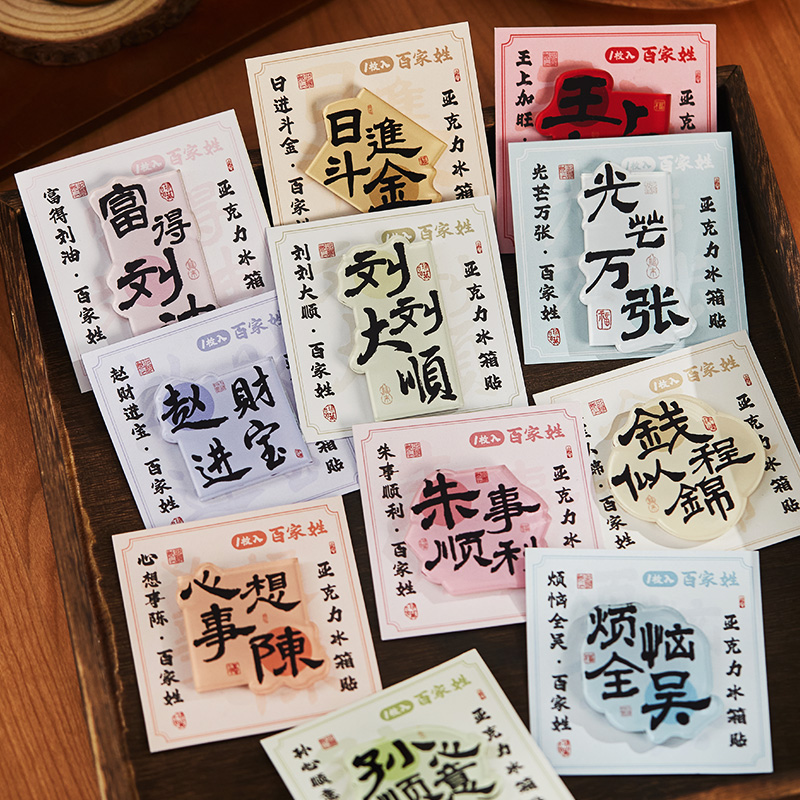 1枚入 百家姓
日进斗金·百家
日進
斗金
亚克力冰箱
1枚入 百家姓
王上加旺
王上
亚克
1枚入 百家姓
富得刘油·百家姓
富得
刘油
亚克力冰箱贴
1枚入 百家姓
刘刘大顺·百家姓
刘刘
大順
亚克力冰箱贴
1枚入 百家姓
光芒万张·百家姓
光芒
万张
福
亚克力冰箱贴
1枚入 百家姓
赵财进宝·百家姓
赵財
进宝
冰箱贴
1枚入 百家姓
朱事顺利·百家姓
朱事
顺利
亚克力冰箱贴
1枚入 百家姓
百家姓
錢程
似錦
亚克力冰箱贴
1枚入 百家姓
心想事陈·百家姓
心想
事陳
亚克力冰箱贴
1枚入 百家姓
烦恼全吴·百家姓
烦恼
全吴
亚克力冰箱贴
1枚入 百家姓
心顺意
孙心
顺意
亚克力冰箱贴